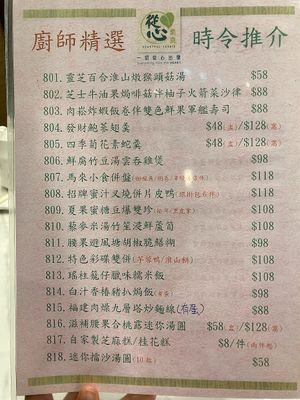 廚師精選
從心素食
一切從心出發
時令推介
801. 靈芝百合淮山燉猴頭菇湯 $58
802. 芝士牛油果焗啡菇伴柚子火箭菜沙律 $88
803. 肉崧炸蝦飯卷伴雙色鮮果軍艦壽司 $88
804. 發財鮑茶翅羹 $48(盅)/$128(窩)
805. 四季菊花素蛇羹 $48(盅)/$128(窩)
806. 鮮腐竹豆湯雲吞雞煲 $98
807. 馬來小食併盤 $118
808. 招牌蜜汁叉燒併片皮鴨 $118
809. 夏果蜜糖豆爆雙珍 $108
810. 藜麥米湯竹笙浸鮮蘆筍 $108
811. 腰果遊風塘胡椒脆鱔糊 $98
812. 特色彩碟雙併 $108
813. 瑤柱瓮仔臘味糯米飯 $108
814. 白汁香椿豬扒焗飯 $98
815. 福建肉燥九層塔炒麵線 $88
816. 滋補腰果合桃露迷你湯圓 $58(盅)/$128(窩)
817. 自家製芝麻糕/桂花糕 $8/件
818. 迷你擂沙湯圓 $58